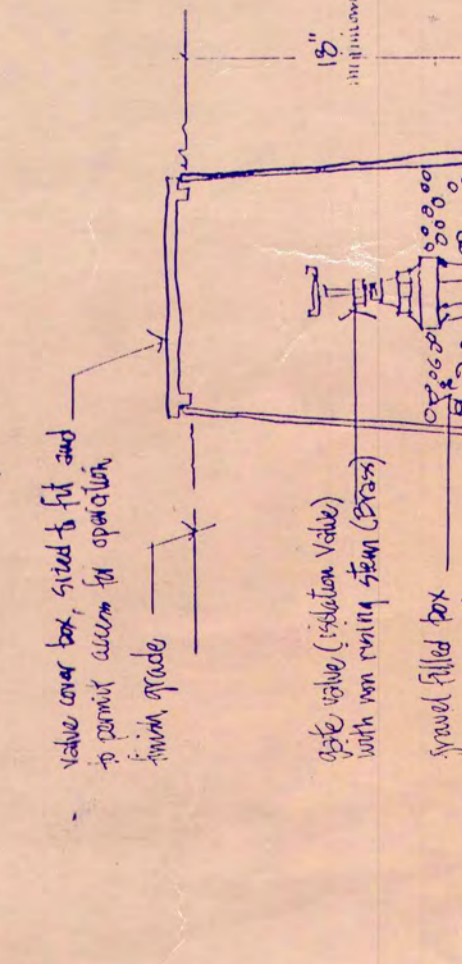 18"
minimum
valve cover box, sized to fit and
to permit access for operation
finish grade
gate valve (isolation valve)
with non rising stem (Brass)
gravel filled box